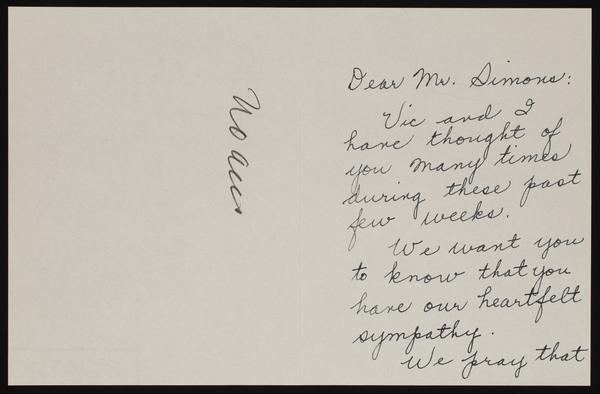 No ans
Dear Mr. Simons:
Vic and I
have thought of
you many times
during these past
few weeks.
We want you
to know that you
have our heartfelt
sympathy.
We pray that